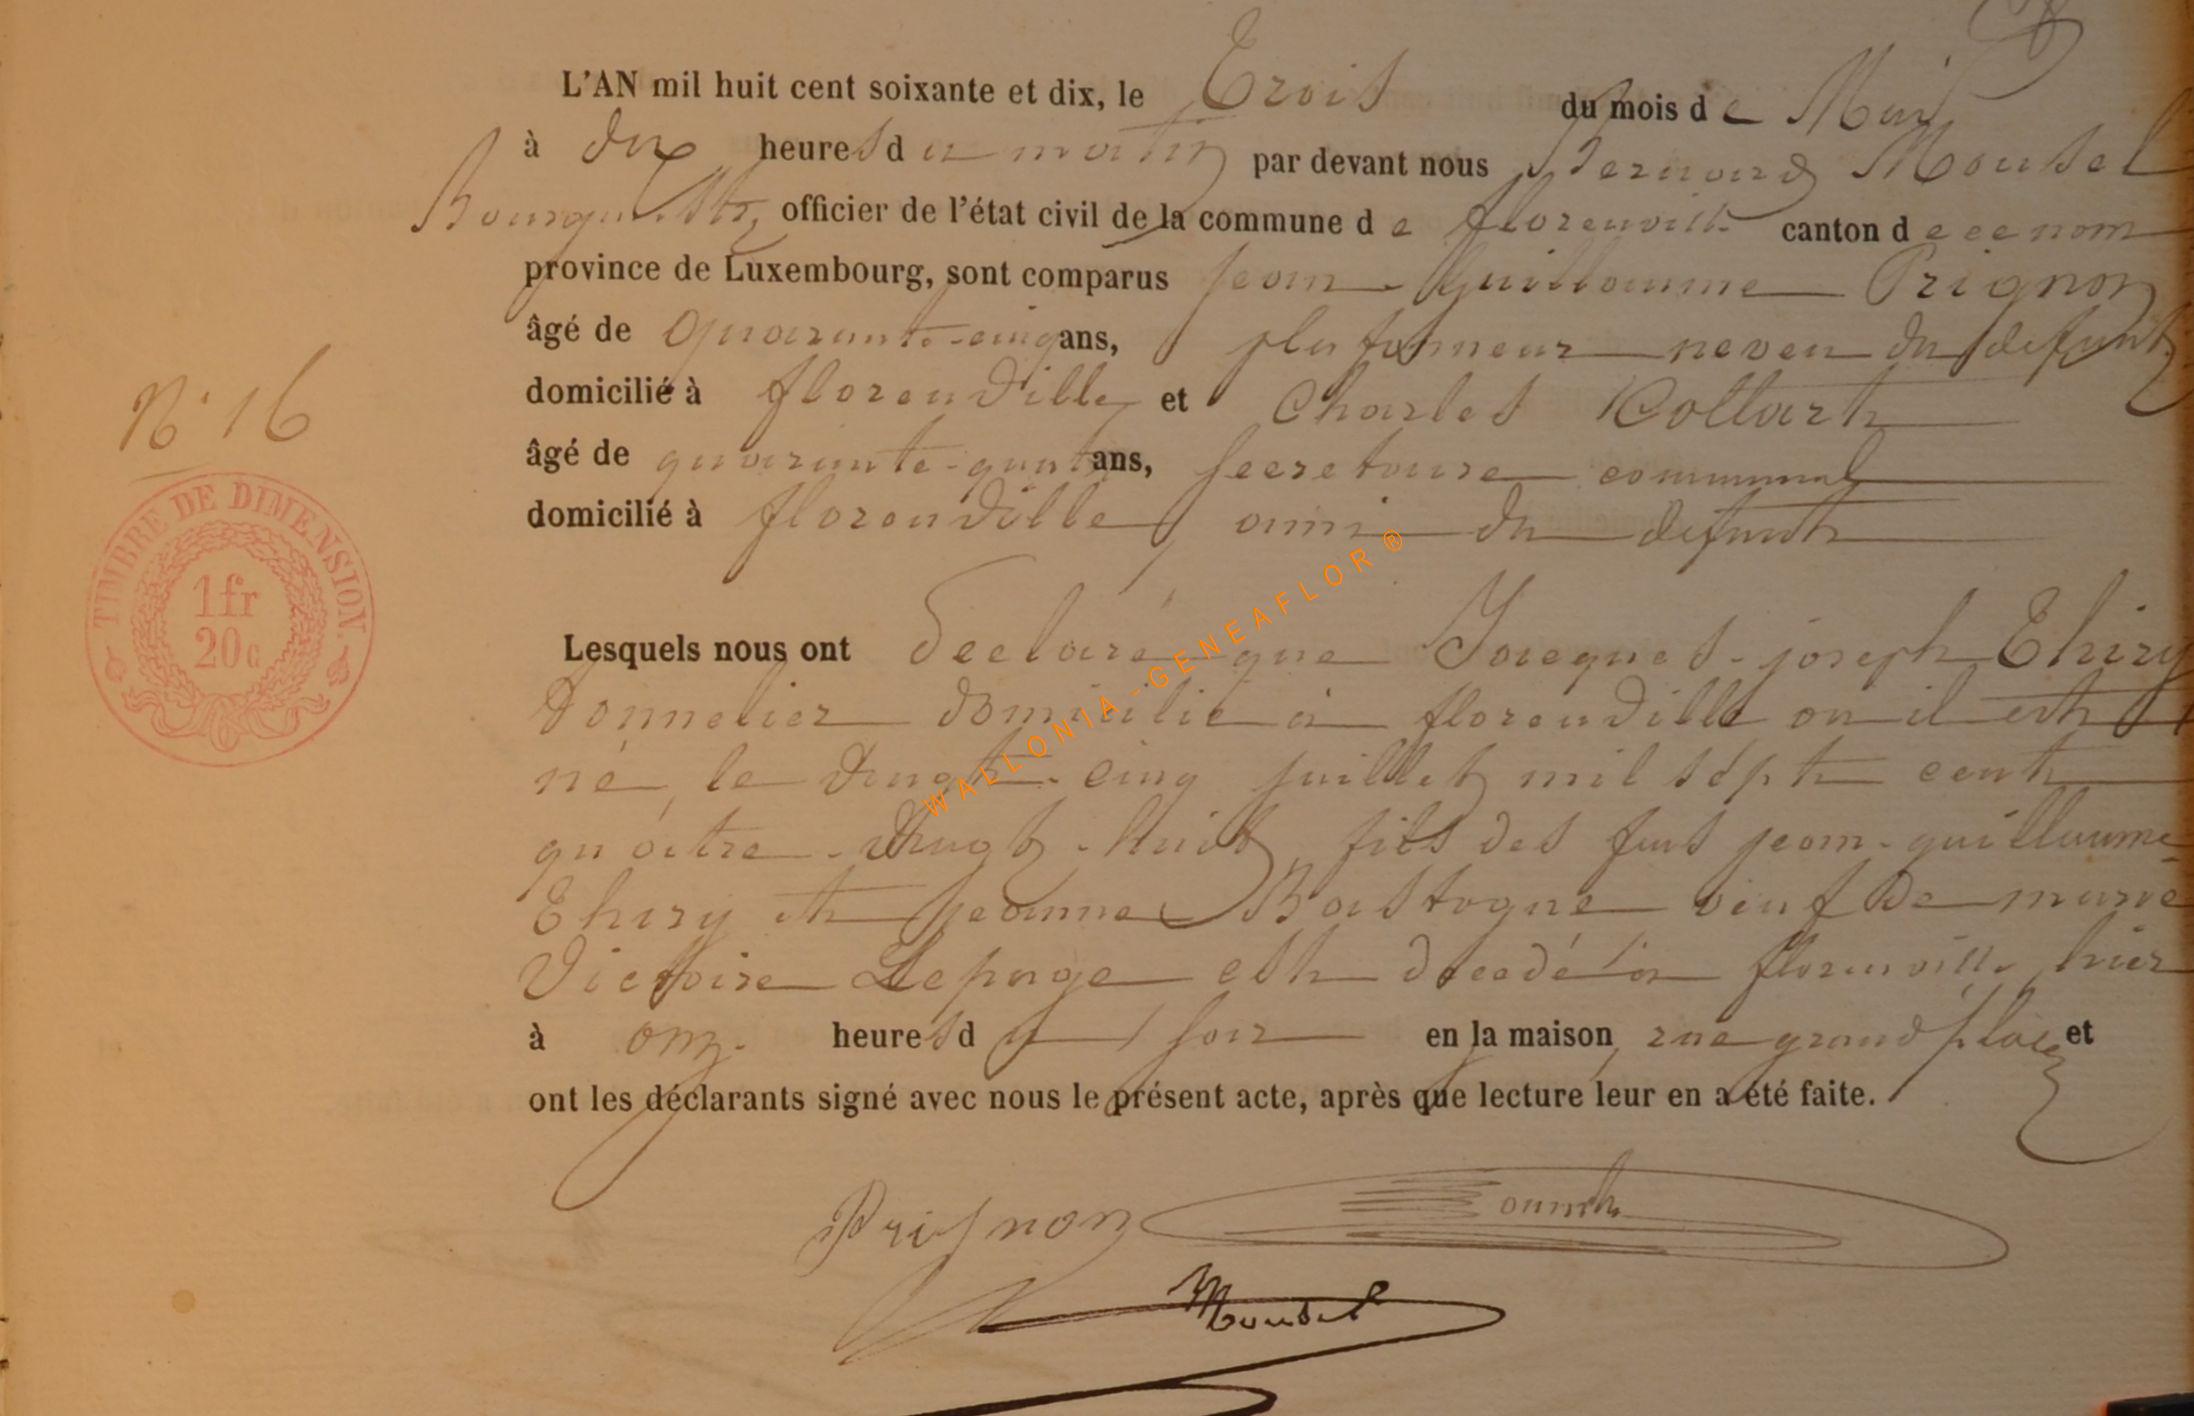 L'AN mil huit cent soixante et dix, le Trois du mois de Mai
à dix heures du matin par devant nous Bernard Mousel
Bourgmestre, officier de l'état civil de la commune de florenville canton de ce nom
province de Luxembourg, sont comparus jean-Guillaume Prignon
âgé de quarante-cinq ans, plafonneur neveu du defunt
domicilié à florenville et Charles Collart
âgé de quarante-quatre ans, secretaire communal
domicilié à florenville ami du defunt
N° 16
TIMBRE DE DIMENSION.
1fr
20c
Lesquels nous ont declaré que Jacques-joseph Thiry
Tonnelier domicilié à florenville ou il est
né, le vingt-cinq juillet mil sept cent
quatre-vingt-huit, fils des furs jean-guillaume
Thiry et jeanne Bastogne veuf de marie
Victoire Lepage est décedé à florenville hier
à onze heures du soir en la maison, rue grand place et
ont les déclarants signé avec nous le présent acte, après que lecture leur en a été faite.
Prignon
Mousel
WALLONIA-GENEAFLOR®